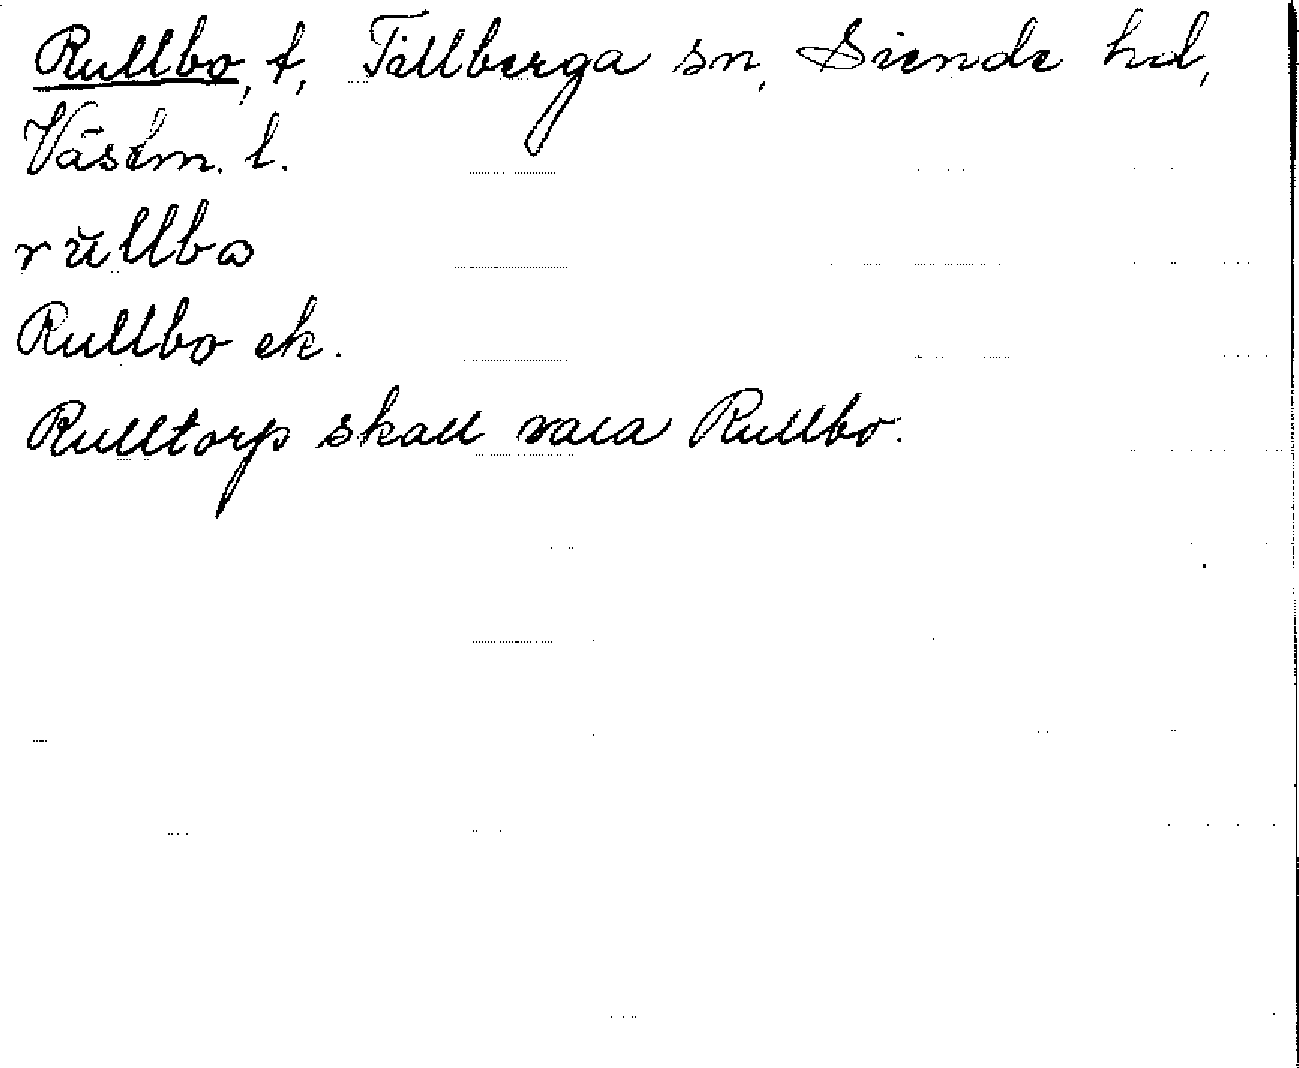 Rullbo, t, Tillberga sn, Siende hd,
Västm. l.
rŭllbω
Rullbo ek.
Rulltorp skall vara Rullbo.